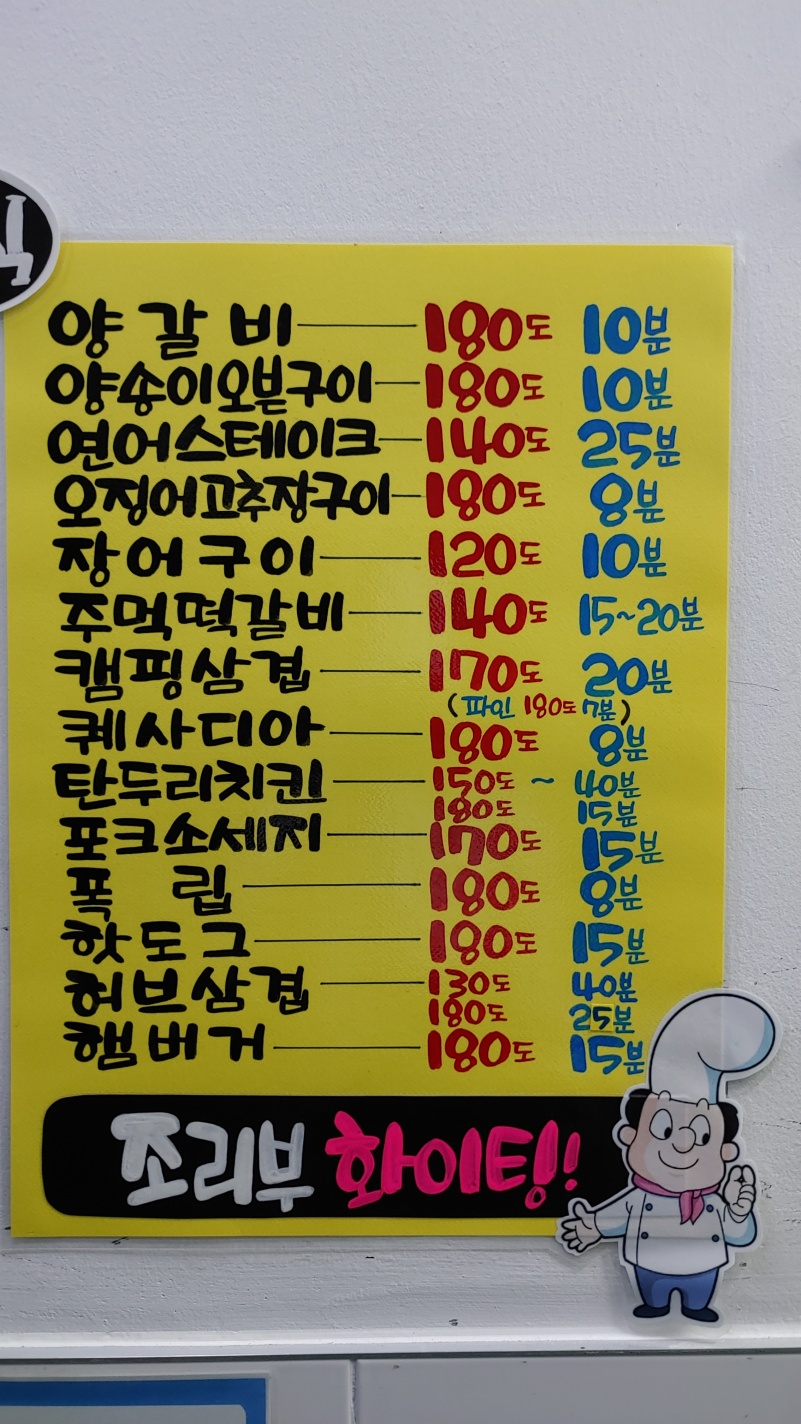 식
양갈비 180도 10분
양송이오븐구이 180도 10분
연어스테이크 140도 25분
오징어고추장구이 180도 8분
장어구이 120도 10분
주먹떡갈비 140도 15~20분
캠핑삼겹 170도 20분
(파인 180도 7분)
퀘사디아 180도 8분
탄두리치킨 150도 ~ 40분
180도 15분
포크소세지 170도 15분
폭립 180도 8분
핫도그 180도 15분
허브삼겹 130도 40분
180도 25분
햄버거 180도 15분
조리부 화이팅!!